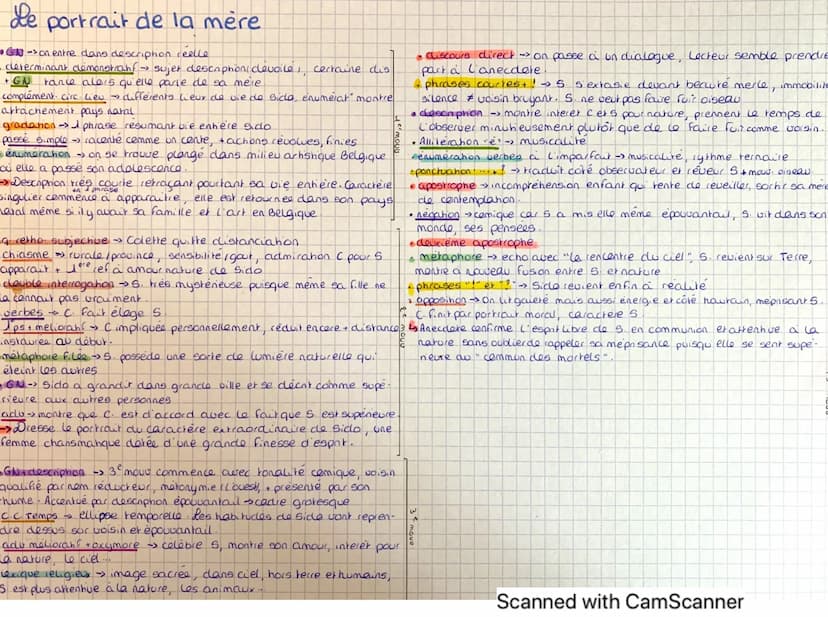 Le portrait de la mère
• GN → on entre dans description réelle
• déterminant démonstratif → sujet description dévoilé, certaine dis
+ GN tance alors qu'elle parle de sa mère
complément circ lieu → différents lieux de vie de Sido, énumérat° montre
attachement pays natal
gradation → 1 phrase résumant vie entière Sido
passé simple → raconté comme un conte, + actions révolues, finies
• énumération → on se trouve plongé dans milieu artistique Belgique
où elle a passé son adolescence.
→ Description très courte retraçant pourtant sa vie entière. Caractère
en 1 phrase
singulier commence à apparaître, elle est retournée dans son pays
natal même si il y avait sa famille et l'art en Belgique.
1er mouv
q° rétho subjective → Colette quitte distanciation
chiasme → rurale/province, sensibilité/goût, admiration C pour S
apparait + 1ère réf à amour nature de Sido
• double interrogation → S. très mystérieuse puisque même sa fille ne
la connait pas vraiment.
verbes → C. fait éloge S.
1ps + mélioratif → C impliquée personnellement, réduit encore + distance
instaurée au début.
métaphore filée → S. possède une sorte de lumière naturelle qui
éteint les autres
• GN → Sido a grandit dans grande ville et se décrit comme supé-
rieure aux autres personnes
adv → montre que C. est d'accord avec le fait que S est supérieure.
→ Dresse le portrait du caractère extraordinaire de Sido, une
femme charismatique dotée d'une grande finesse d'esprit.
2e mouv
• GN + description → 3e mouv commence avec tonalité comique, voisin
qualifié par nom réducteur, métonymie (l'ouest), + présenté par son
rhume. Accentué par description épouvantail → cadre grotesque
C.C Temps → ellipse temporelle. Les habitudes de Sido vont repren-
dre dessus sur voisin et épouvantail
adv mélioratif + oxymore → célèbre S, montre son amour, intérêt pour
la nature, le ciel...
lexique religieux → image sacrée, dans ciel, hors terre et humains,
S est plus attentive à la nature, les animaux.
3e mouv
• discours direct → on passe à un dialogue, lecteur semble prendre
part à l'anecdote.
• phrases courtes + ! → S s'extasie devant beauté merle, immobilité
silence ≠ voisin bruyant. S. ne veut pas faire fuir oiseau
• description → montre intérêt C et S pour nature, prennent le temps de
l'observer minutieusement plutôt que de le faire fuir comme voisin.
• Allitération "r" → musicalité
• énumération verbes à l'imparfait → musicalité, rythme ternaire
• ponctuation "...!" → traduit côté observateur et rêveur S + mouv. oiseau
• apostrophe → incompréhension enfant qui tente de réveiller, sortir sa mère
de contemplation.
• négation → comique car S a mis elle même épouvantail, S vit dans son
monde, ses pensées.
• deuxième apostrophe
• métaphore → écho avec "la rencontre du ciel", S. revient sur Terre,
montre à nouveau fusion entre S et nature
• phrases "!" et "?" → Sido revient enfin à réalité
• opposition → On lit gaieté mais aussi énergie et côté hautain, méprisant S.
C. finit par portrait moral, caractère S.
↳ Anecdote confirme l'esprit libre de S. en communion et attentive à la
nature sans oublier de rappeler sa méprisance puisqu'elle se sent supé-
rieure au "commun des mortels".
Scanned with CamScanner